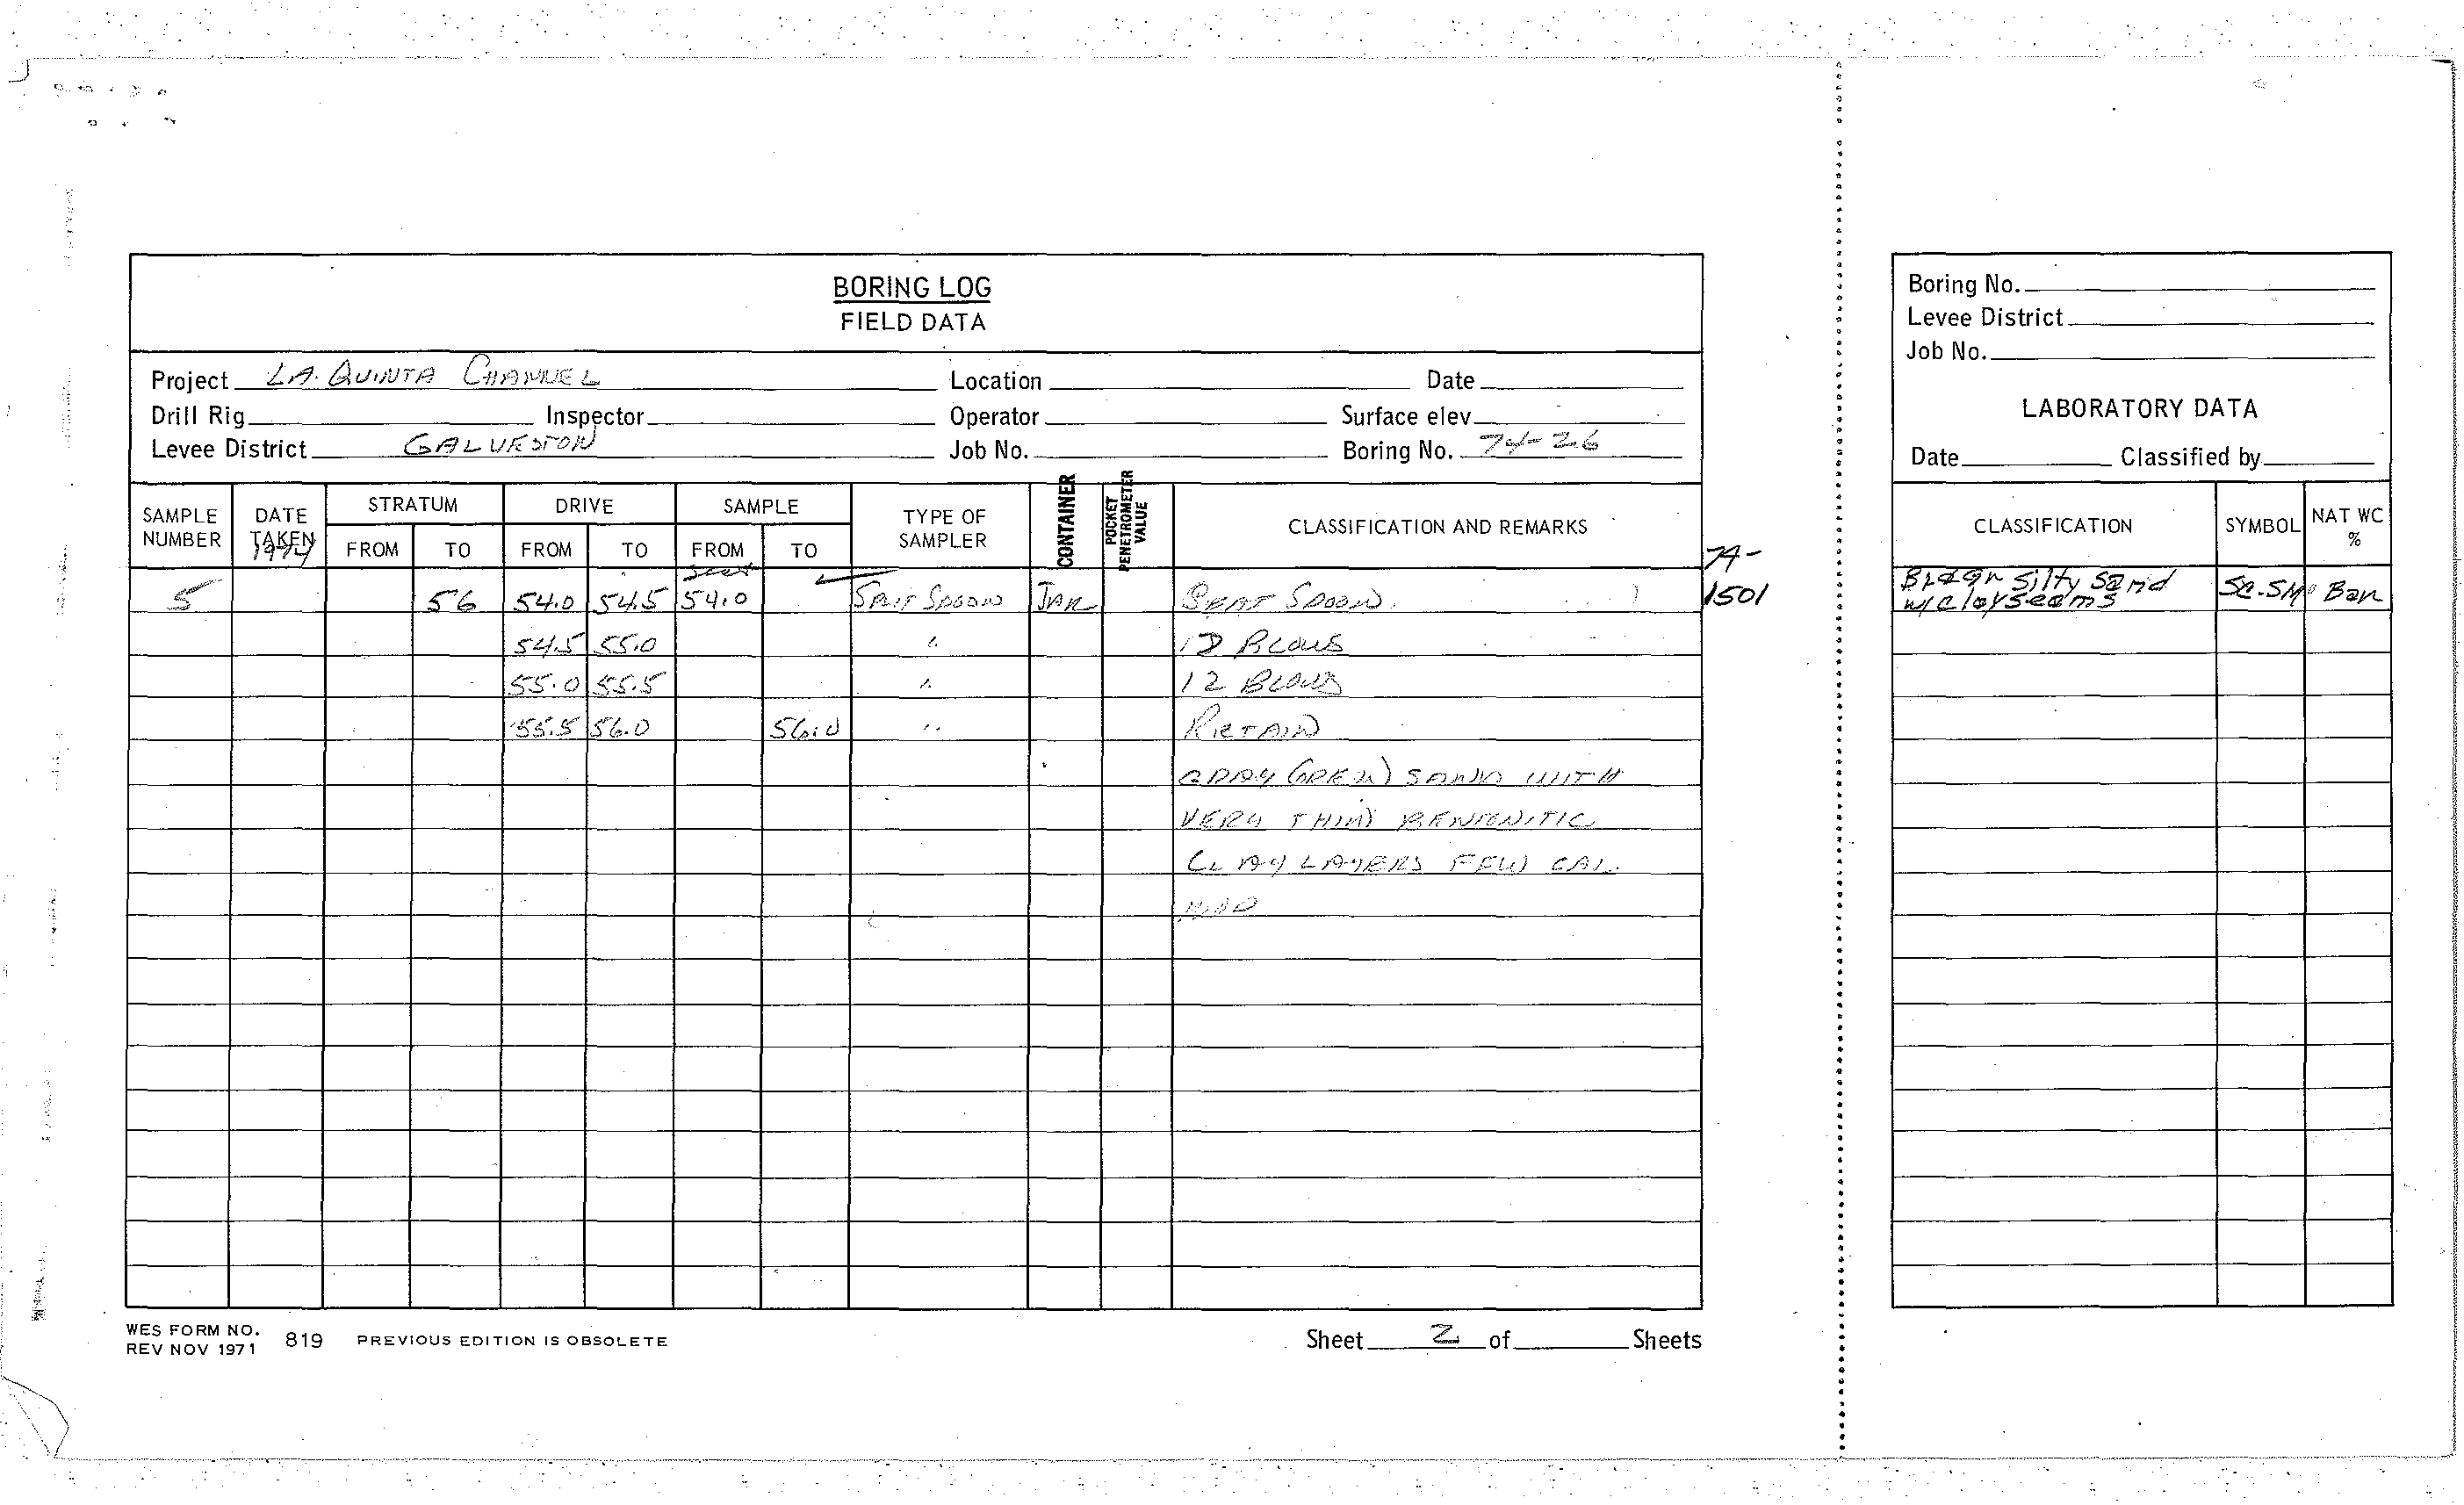 BORING LOG
FIELD DATA
Project LA. QUINTA CHANNEL Location Date
Drill Rig Inspector Operator Surface elev
Levee District GALVESTON Job No. Boring No. 74-26
SAMPLE NUMBER DATE TAKEN 1974 STRATUM FROM TO DRIVE FROM TO SAMPLE FROM TO TYPE OF SAMPLER CONTAINER POCKET PENETROMETER VALUE CLASSIFICATION AND REMARKS
5 56 54.0 54.5 54.0 SPLIT SPOON JAR SEAT SPOON 74-1501
54.5 55.0 " BLOWS
55.0 55.5 " 12 BLOWS
55.5 56.0 56.0 " RETAIN
GRAY (GREEN) SAND WITH
VERY THIN BENTONITIC
CLAY LAYERS FEW CAL.
NOD
WES FORM NO. 819 PREVIOUS EDITION IS OBSOLETE
REV NOV 1971
Sheet 2 of Sheets
Boring No.
Levee District
Job No.
LABORATORY DATA
Date Classified by
CLASSIFICATION SYMBOL NAT WC %
silty sand SC-SM Ban
w/clay seams